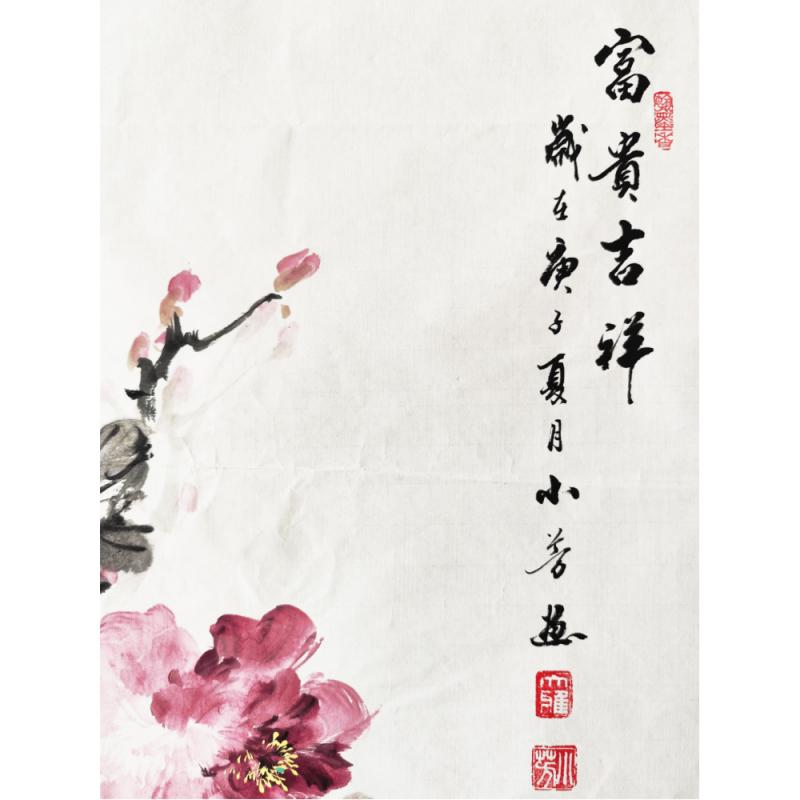 富貴吉祥
歲在庚子夏月小芳畫